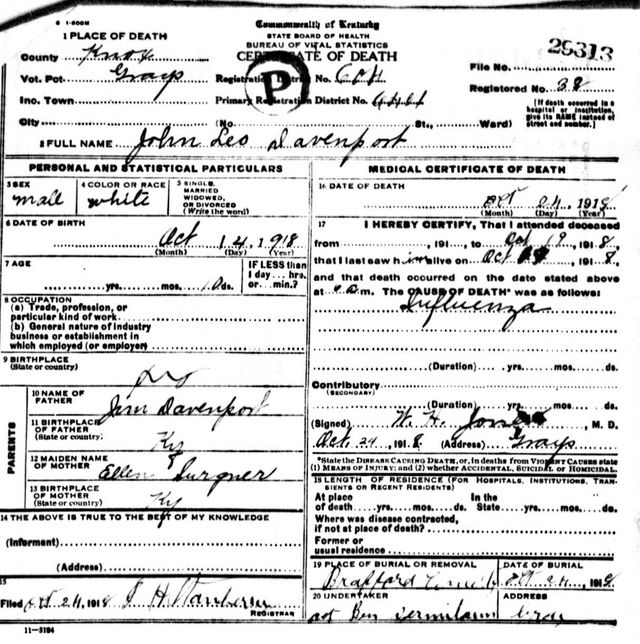 S 1-500M
Commonwealth of Kentucky
STATE BOARD OF HEALTH
BUREAU OF VITAL STATISTICS
CERTIFICATE OF DEATH
29313
1 PLACE OF DEATH
County Knox
Vot. Pct Grays Registration District No.
Inc. Town Primary Registration District No.
P
File No.
Registered No. 38
[If death occurred in a hospital or institution, give its NAME instead of street and number.]
City (No. St., Ward)
2 FULL NAME John Leo Davenport
PERSONAL AND STATISTICAL PARTICULARS
3 SEX male
4 COLOR OR RACE white
5 SINGLE, MARRIED WIDOWED, OR DIVORCED (Write the word)
6 DATE OF BIRTH
Oct 14, 1918
(Month) (Day) (Year)
7 AGE
yrs. mos. 10 ds.
IF LESS than 1 day... hrs. or... min.?
8 OCCUPATION
(a) Trade, profession, or
particular kind of work
(b) General nature of industry
business or establishment in
which employed (or employer)
9 BIRTHPLACE
(State or country)
PARENTS
10 NAME OF FATHER Jim Davenport
11 BIRTHPLACE OF FATHER (State or country) Ky
12 MAIDEN NAME OF MOTHER Ellen
13 BIRTHPLACE OF MOTHER (State or country) Ky
14 THE ABOVE IS TRUE TO THE BEST OF MY KNOWLEDGE
(Informant)
(Address)
15
Filed Oct 24, 1918
REGISTRAR
11-3184
MEDICAL CERTIFICATE OF DEATH
16 DATE OF DEATH
Oct 24, 1918
(Month) (Day) (Year)
17 I HEREBY CERTIFY, That I attended deceased
from , 191 , to Oct 19, 1918,
that I last saw him alive on Oct , 1918,
and that death occurred on the date stated above
at m. The CAUSE OF DEATH* was as follows:
Influenza
(Duration) yrs. mos. ds.
Contributory
(SECONDARY)
(Duration) yrs. mos. ds.
(Signed) W. H. Jones, M. D.
Oct 24, 1918 (Address) Grays
*State the DISEASE CAUSING DEATH, or, in deaths from VIOLENT CAUSES state
(1) MEANS OF INJURY; and (2) whether ACCIDENTAL, SUICIDAL or HOMICIDAL.
18 LENGTH OF RESIDENCE (FOR HOSPITALS, INSTITUTIONS, TRANSIENTS OR RECENT RESIDENTS)
At place of death yrs. mos. ds. In the State yrs. mos. ds.
Where was disease contracted,
if not at place of death?
Former or
usual residence
19 PLACE OF BURIAL OR REMOVAL
DATE OF BURIAL
Oct 24, 1918
20 UNDERTAKER
ADDRESS
Ben